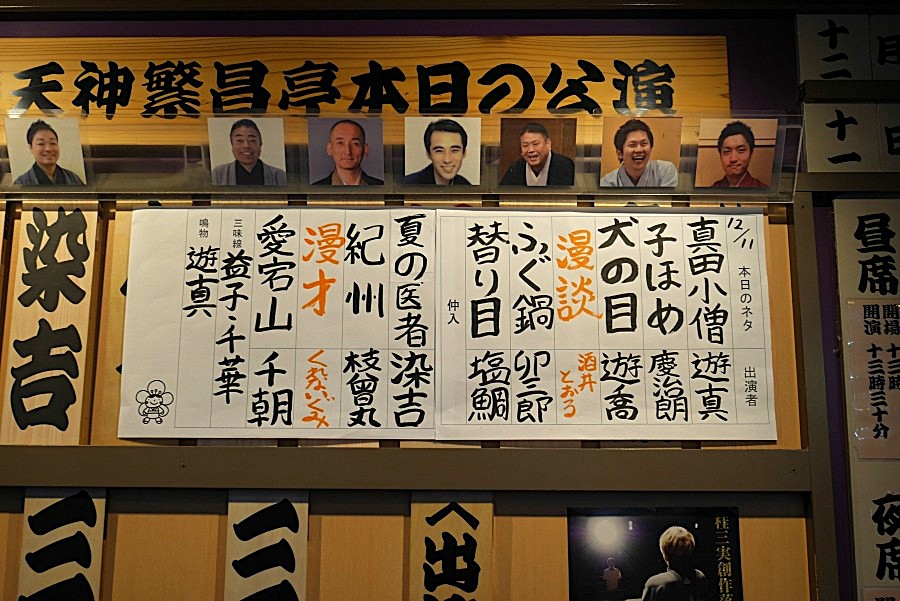 天神繁昌亭本日の公演
12/11
本日のネタ 出演者
真田小僧 遊真
子ほめ 慶治朗
犬の目 遊喬
漫談 酒井とおる
ふぐ鍋 卯三郎
替り目 塩鯛
仲入
夏の医者 染吉
紀州 枝曾丸
漫才 くれないぐみ
愛宕山 千朝
三味線 益子・千華
鳴物 遊真
染吉
十二月
十一日
昼席
開場 十三時
開演 十三時三十分
夜席
出
桂三実創作